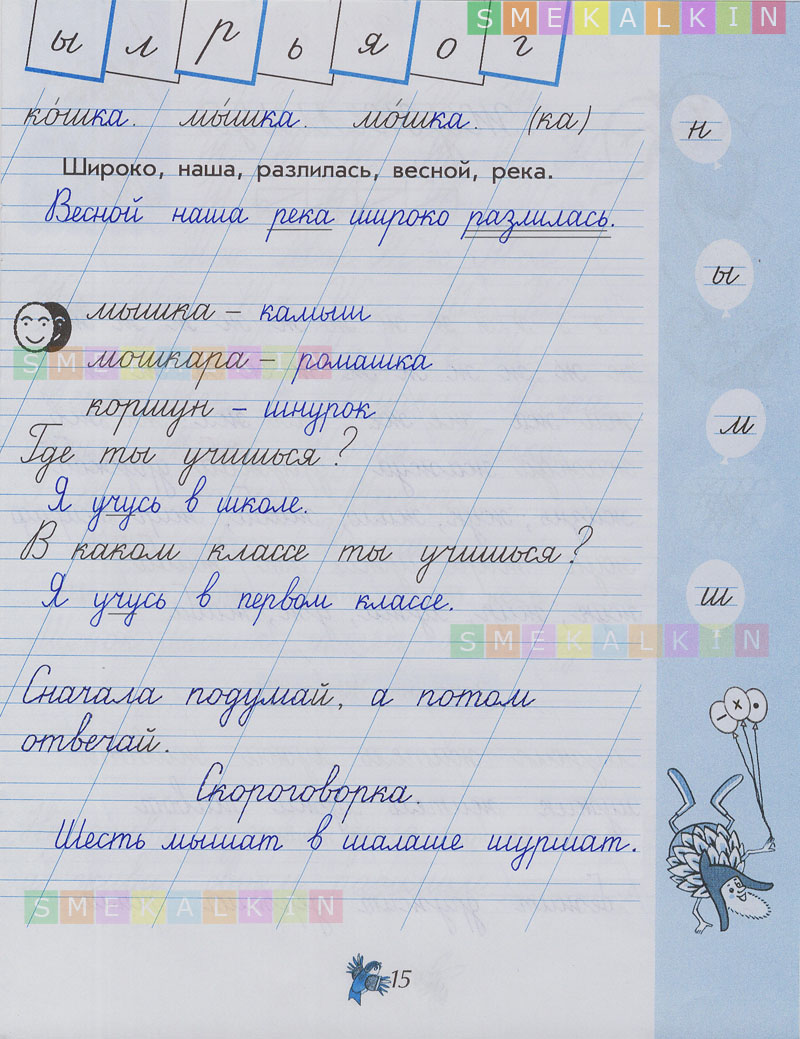 SMEKALKIN
ы л р ь я о г
ко́шка. мы́шка. мо́шка. (ка)
н
Широко, наша, разлилась, весной, река.
Весной наша река широко разлилась.
ы
мышка – камыш
SMEKALKIN
мошкара – ромашка
коршун – шнурок
м
Где ты учишься?
Я учусь в школе.
В каком классе ты учишься?
Я учусь в первом классе.
ш
SMEKALKIN
Сначала подумай, а потом
отвечай.
Скороговорка.
Шесть мышат в шалаше шуршат.
SMEKALKIN
15